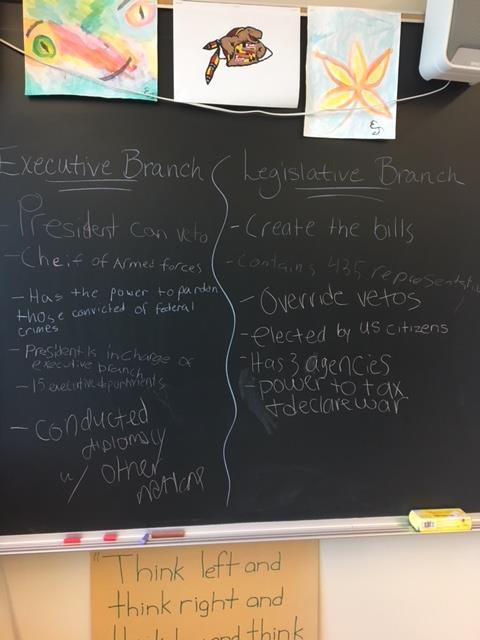 Executive Branch
- President can veto
- Cheif of Armed forces
- Has the power to pardon
those convicted of federal
crimes
- President is in charge of
executive branch
- 15 executive departments
- conducted
diplomacy
w/ other
nations
Legislative Branch
- Create the bills
- Contains 435 representatives
- Override vetos
- elected by US citizens
- Has 3 agencies
- power to tax
+ declare war
"Think left and
think right and
think and think